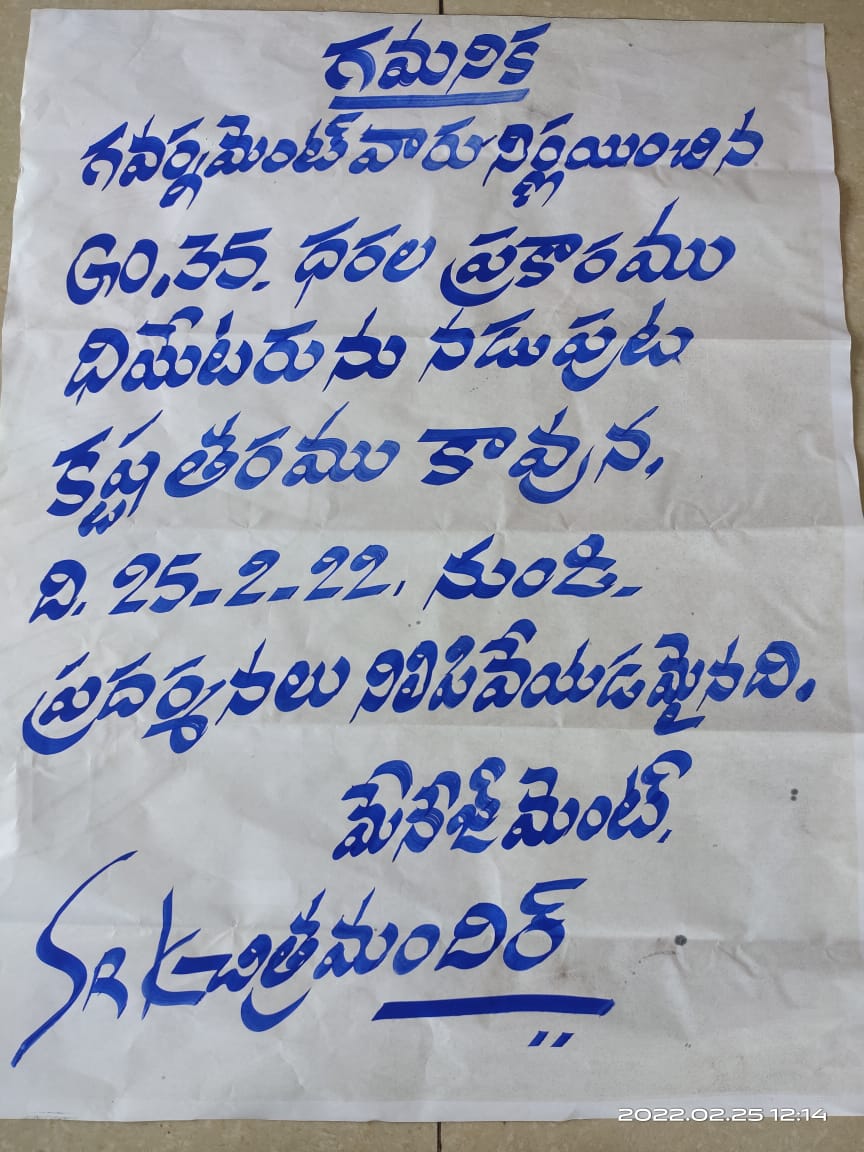 గమనిక
గవర్నమెంట్ వారు నిర్ణయించిన
GO.35. ధరల ప్రకారము
ధియేటరును నడుపుట
కష్టతరము కావున.
ది. 25-2-22. నుండి-
ప్రదర్శనలు నిలిపివేయడమైనది.
మేనేజ్‌మెంట్.
SRK చిత్రమందిర్
2022.02.25 12:14